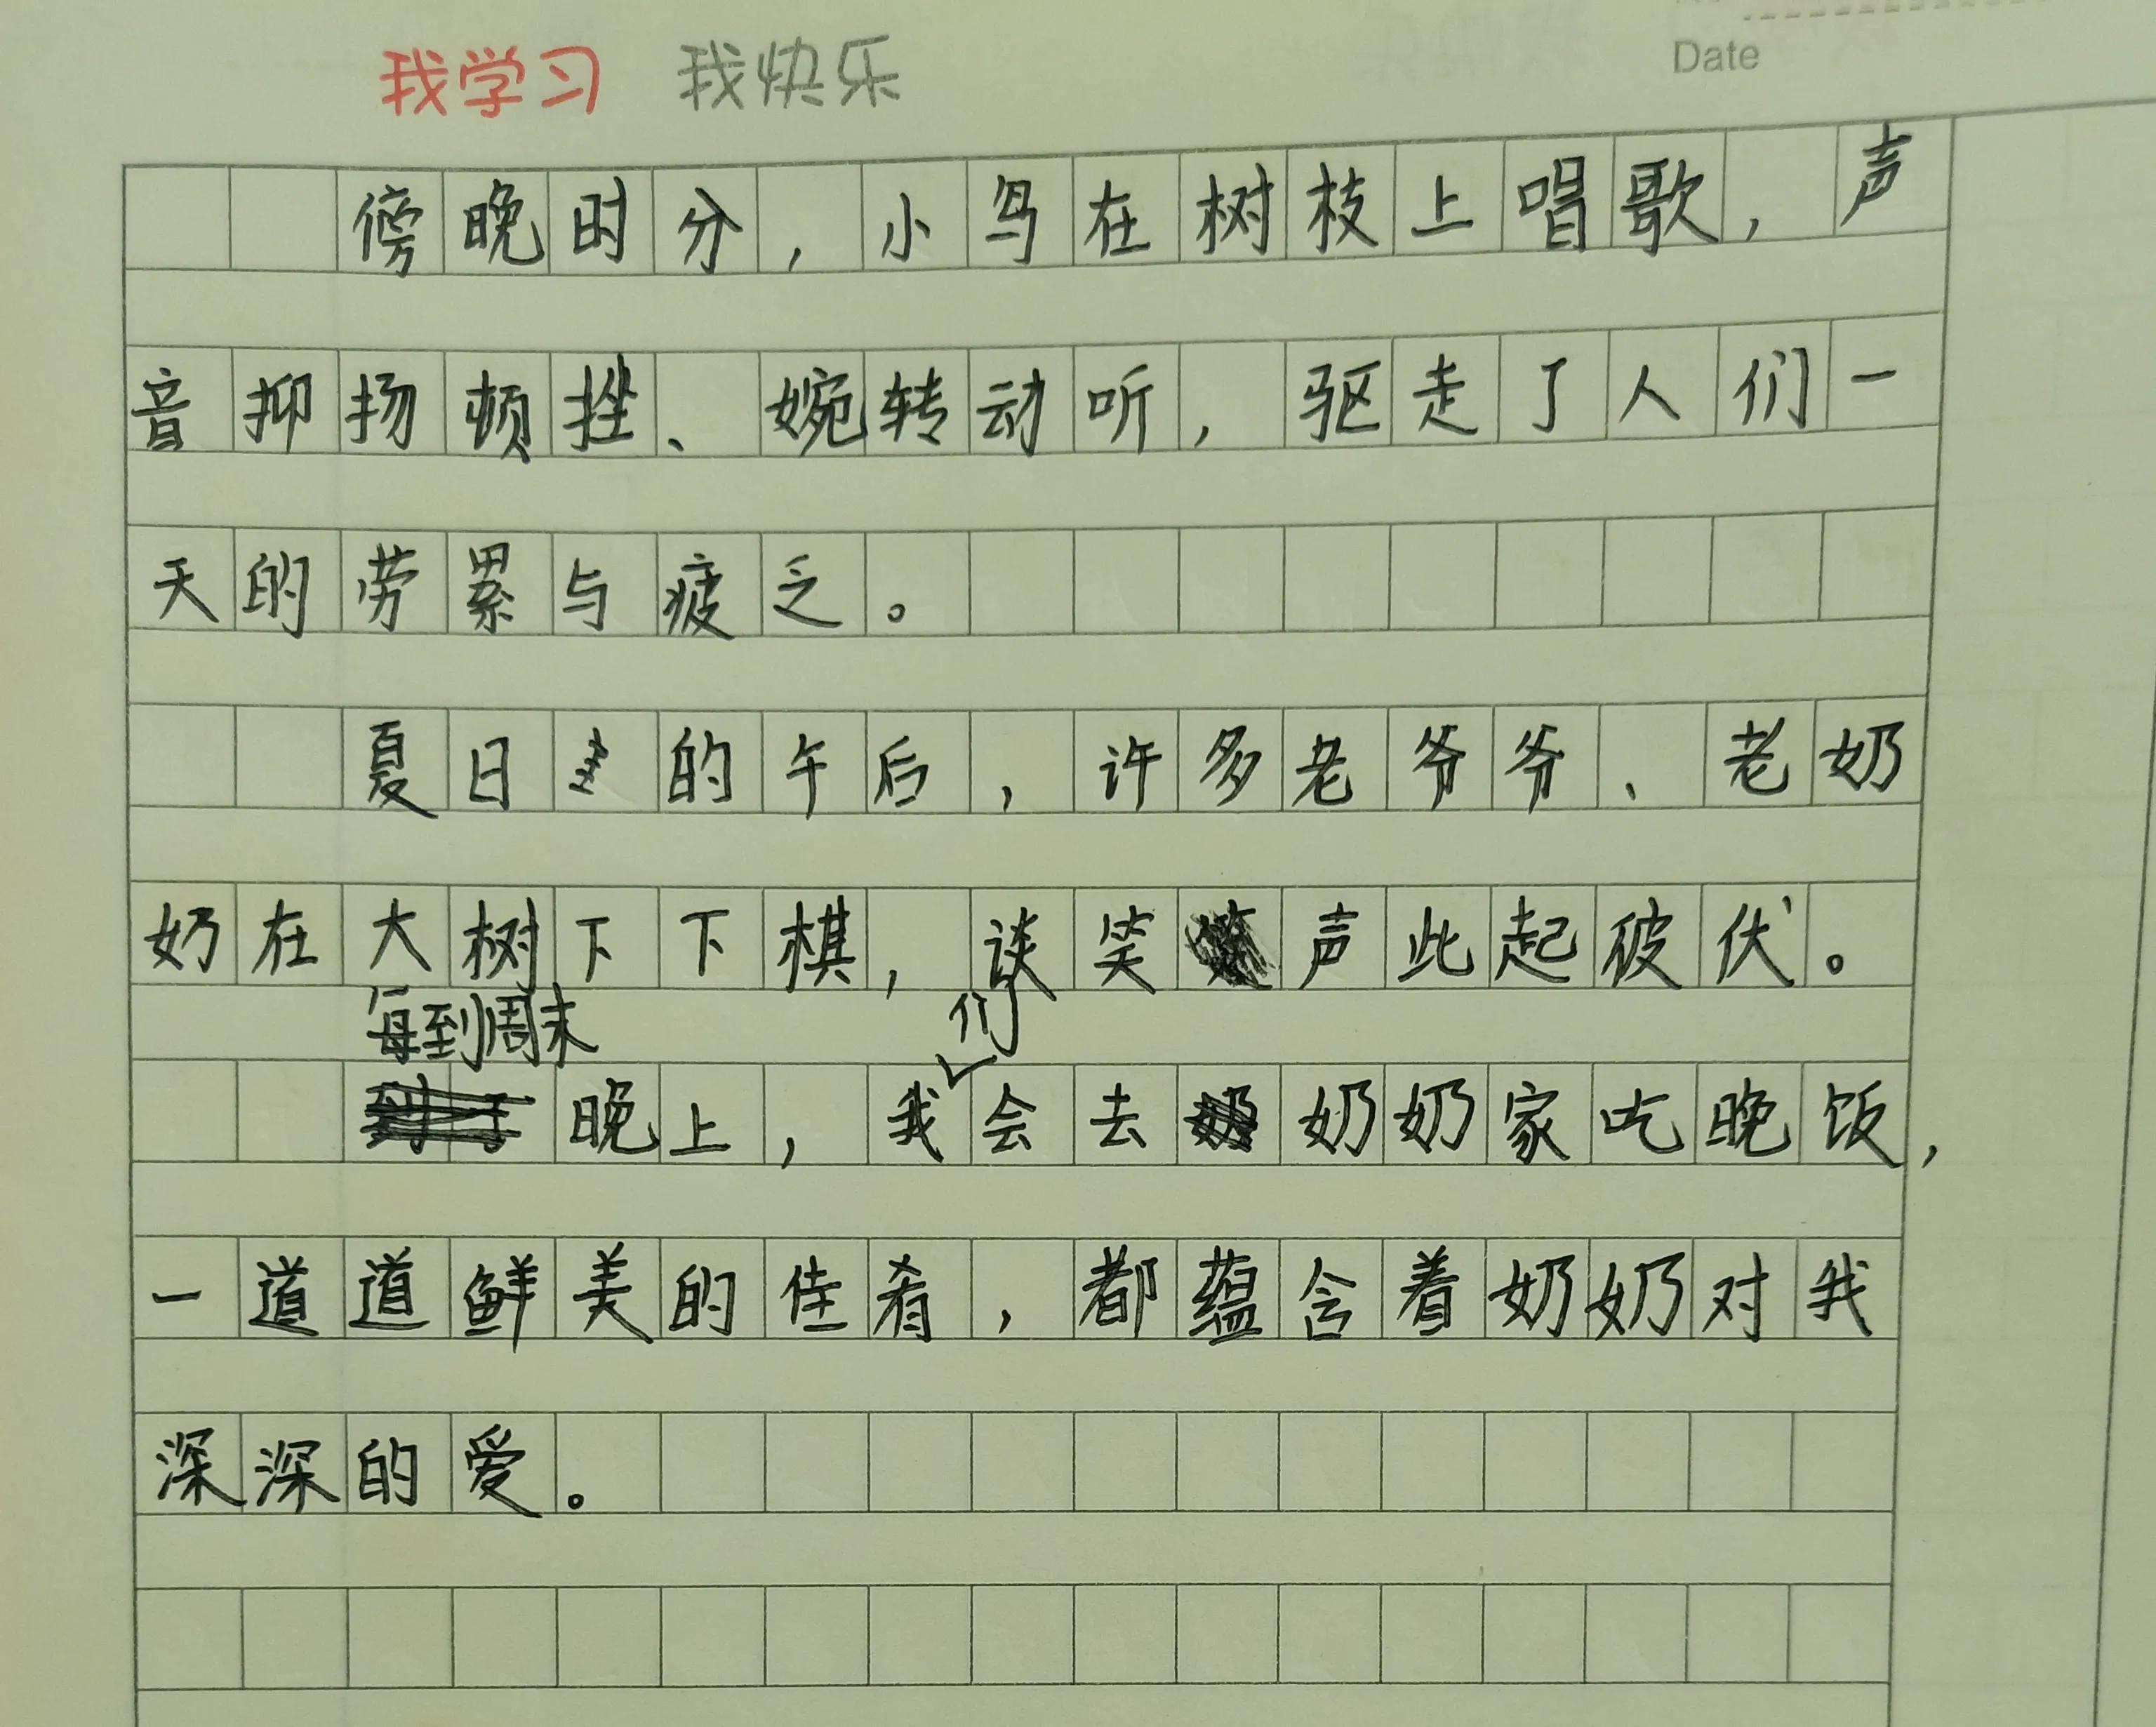 Date
我学习 我快乐
傍晚时分，小鸟在树枝上唱歌，声
音抑扬顿挫、婉转动听，驱走了人们一
天的劳累与疲乏。
夏日的午后，许多老爷爷、老奶
奶在大树下下棋，谈笑声此起彼伏。
每到周末晚上，我们会去奶奶家吃晚饭，
一道道鲜美的佳肴，都蕴含着奶奶对我
深深的爱。